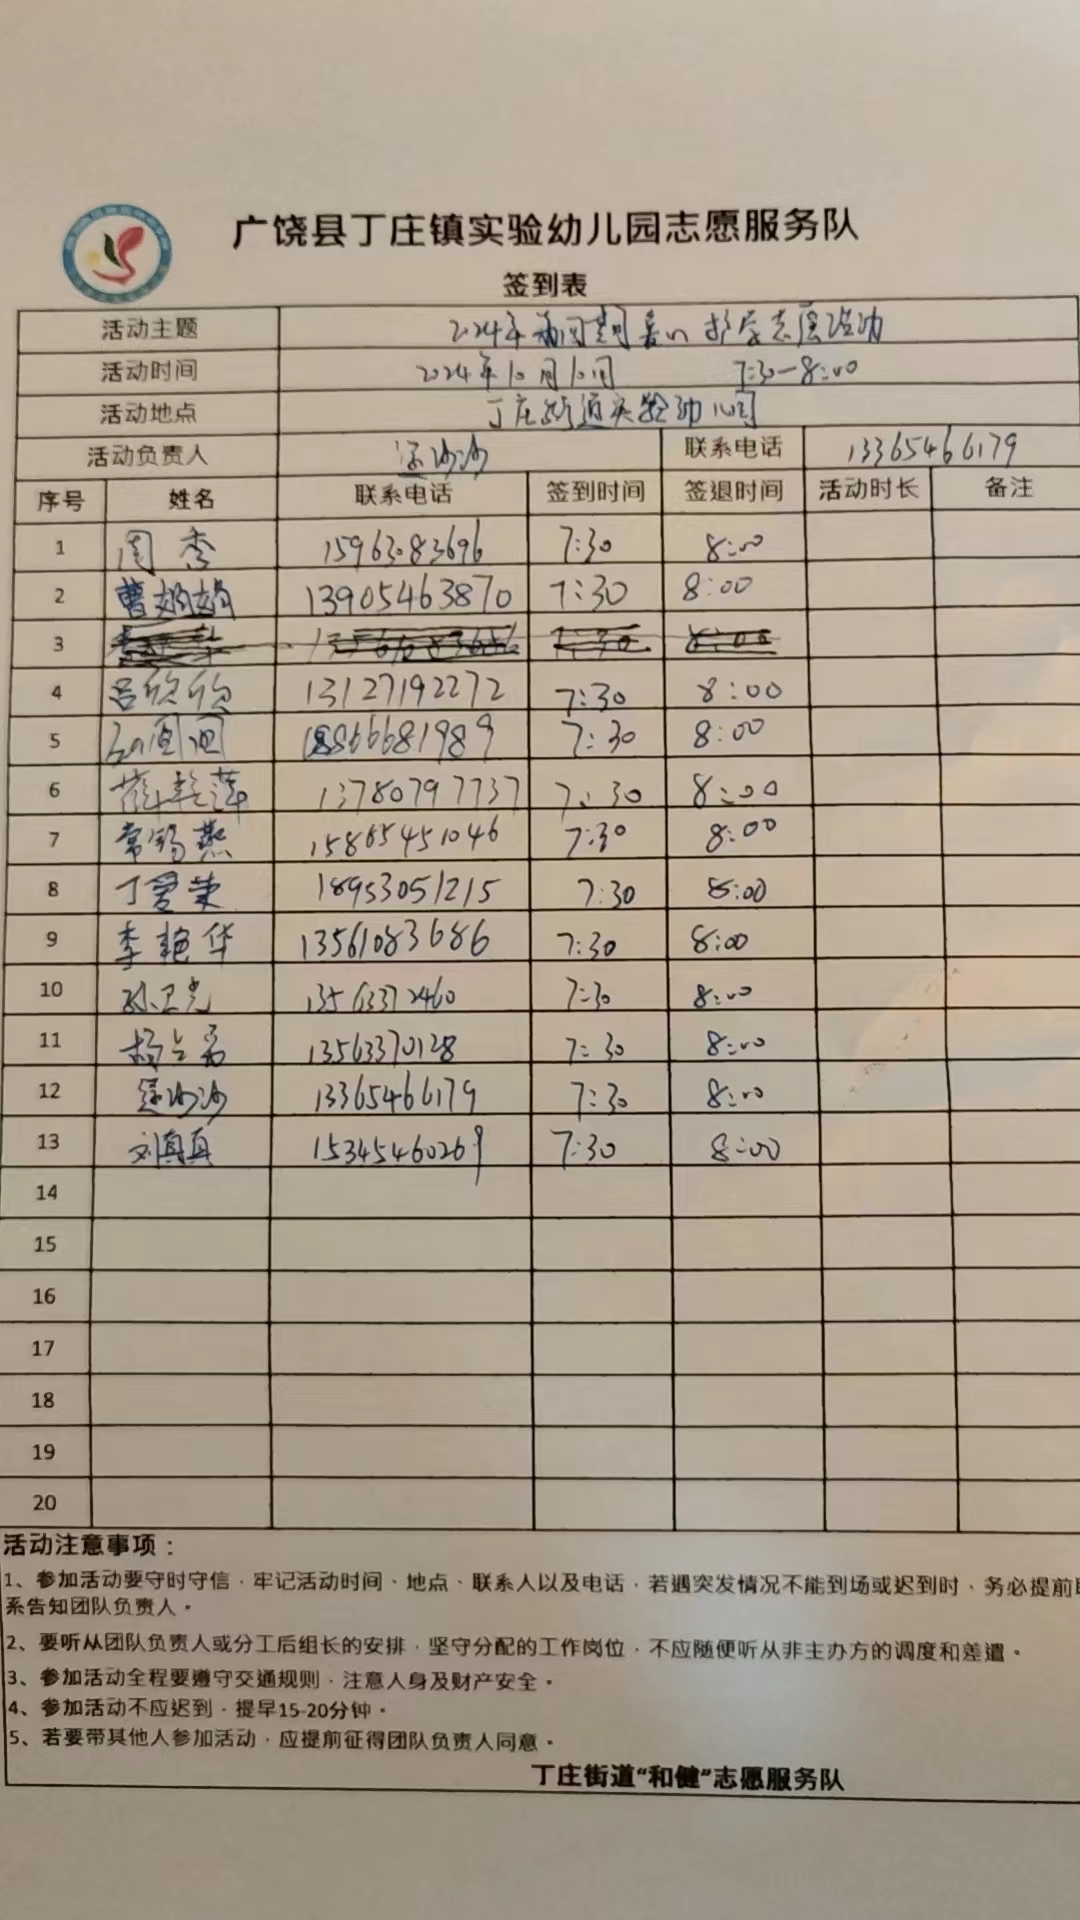 广饶县丁庄镇实验幼儿园志愿服务队
签到表
活动主题 2024年 志愿活动
活动时间 2024年10月10日 7:30-8:00
活动地点 丁庄街道实验幼儿园
活动负责人 沙沙 联系电话 13365466179
序号 姓名 联系电话 签到时间 签退时间 活动时长 备注
1 周秀 15963083696 7:30 8:00
2 曹娟娟 13905463870 7:30 8:00
3
4 吕欣欣 13127192272 7:30 8:00
5 18866681989 7:30 8:00
6 薛艳萍 13780797737 7:30 8:00
7 常锡燕 15865451046 7:30 8:00
8 丁爱荣 18953051215 7:30 8:00
9 李艳华 13561083686 7:30 8:00
10 孙卫光 13563372460 7:30 8:00
11 杨占勇 13563370128 7:30 8:00
12 沙沙 13365466179 7:30 8:00
13 刘真真 15345460269 7:30 8:00
14
15
16
17
18
19
20
活动注意事项：
1、参加活动要守时守信，牢记活动时间、地点、联系人以及电话，若遇突发情况不能到场或迟到时，务必提前
系告知团队负责人。
2、要听从团队负责人或分工后组长的安排，坚守分配的工作岗位，不应随便听从非主办方的调度和差遣。
3、参加活动全程要遵守交通规则，注意人身及财产安全。
4、参加活动不应迟到，提早15-20分钟。
5、若要带其他人参加活动，应提前征得团队负责人同意。
丁庄街道“和健”志愿服务队